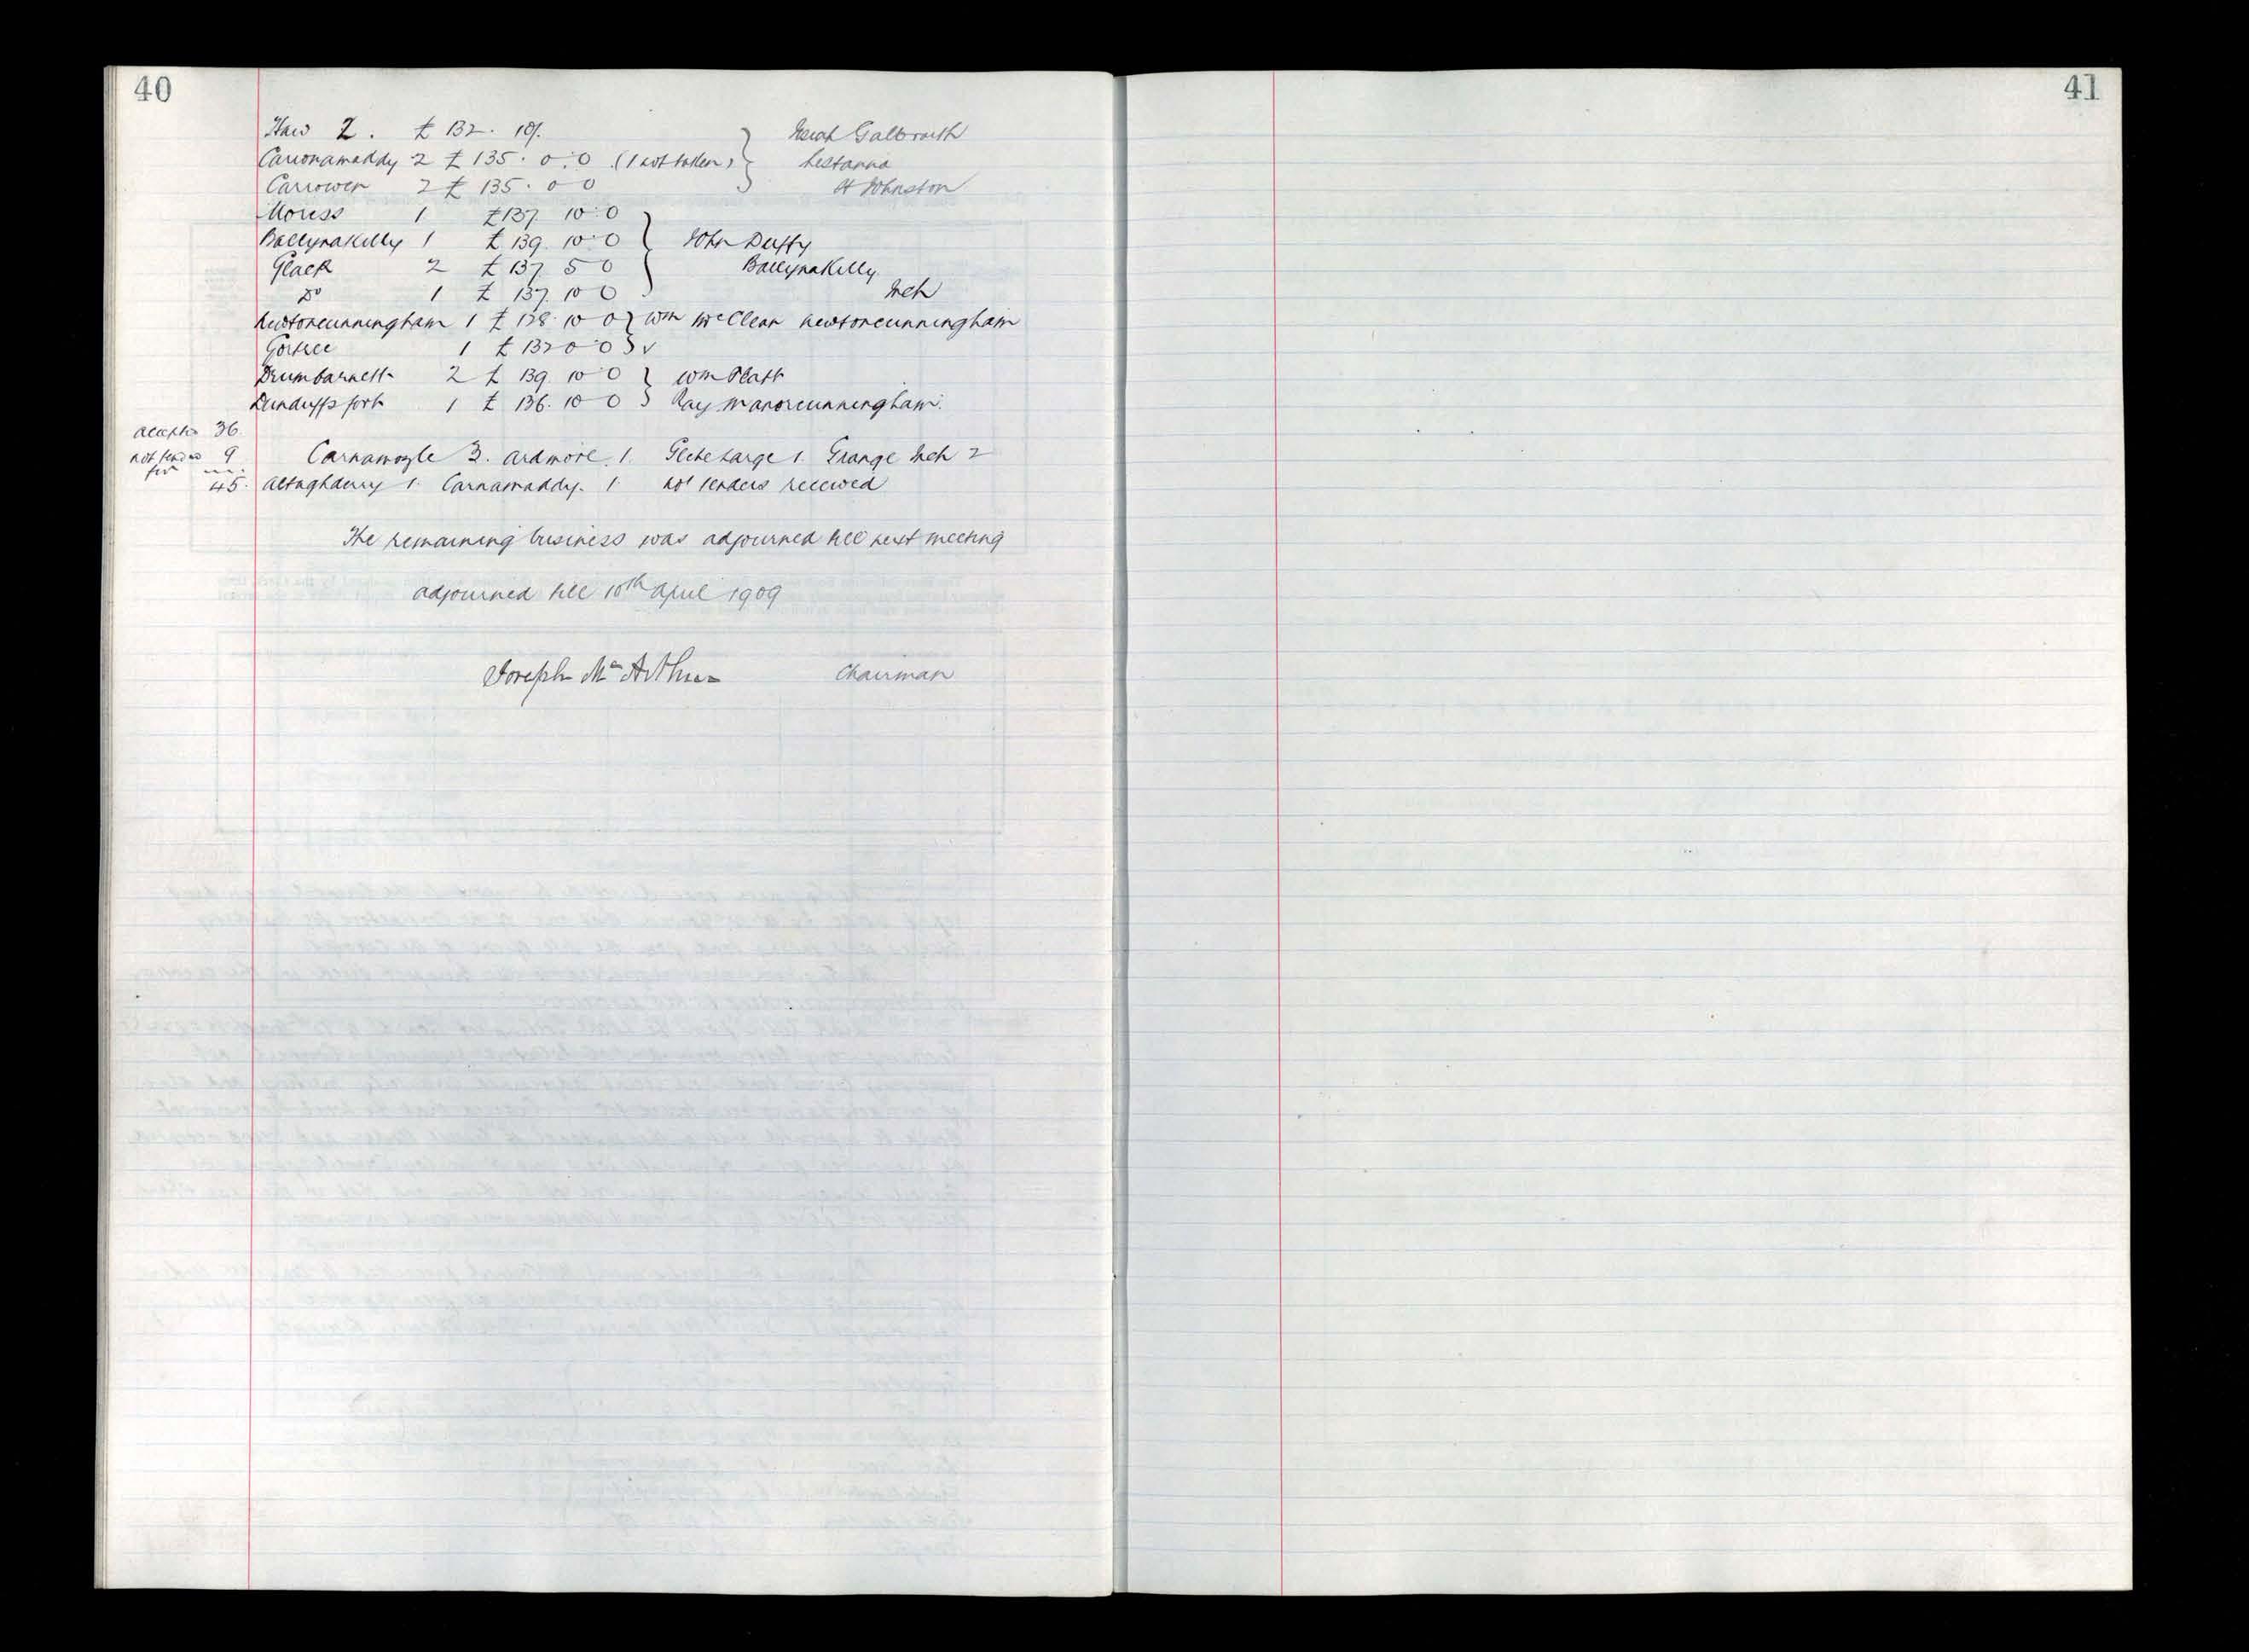 40
Haw 2. £ 132. 10/.
Carronamaddy 2 £ 135. 0. 0 (1 not taken) Galbraith
Carrowen 2 £ 135. 0 0 H Johnston
Moress 1 £137. 10. 0
Ballynakilly 1 £ 139. 10. 0 John Duffy
Glack 2 £ 137. 5 0 Ballynakilly
Do 1 £ 137. 10 0 Inch
Newtoncunningham 1 £ 128. 10 0 Wm McClean Newtoncunningham
Gortree 1 £ 132 0. 0
Drumbarnett 2 £ 139. 10. 0 Wm Platt
Dunduffs fort 1 £ 136. 10 0 Ray Manorcunningham.
36
9 Carnamoyle 3. Ardmore. 1. Glebe barge 1. Grange Inch 2
45. Altaghderry 1. Carnamaddy. 1. not tenders received
The remaining business was adjourned till next meeting
adjourned till 10th April 1909
Joseph McArthur Chairman
41